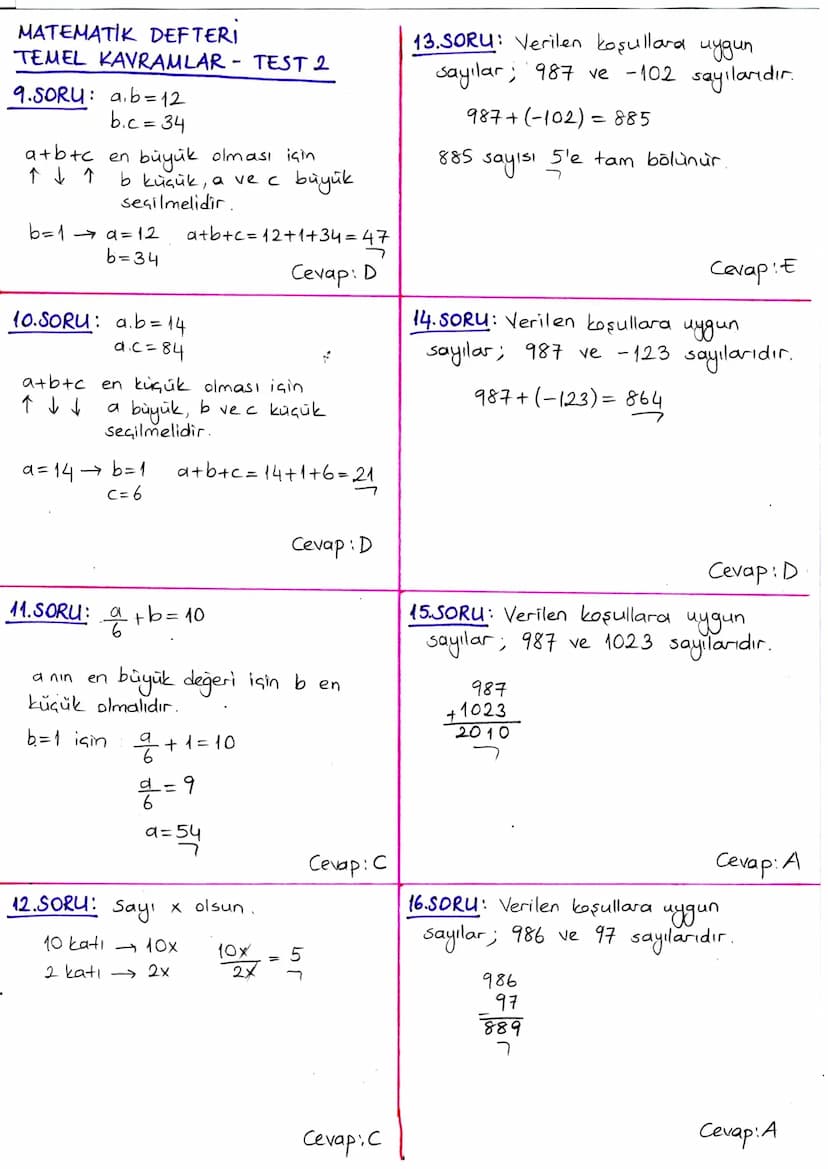 MATEMATİK DEFTERİ
TEMEL KAVRAMLAR - TEST 2
9.SORU: a.b=12
b.c=34
a+b+c en büyük olması için
↑ ↓ ↑ b küçük, a ve c büyük
seçilmelidir.
b=1 → a=12 a+b+c=12+1+34=47
b=34
Cevap: D
10.SORU: a.b=14
a.c=84
a+b+c en küçük olması için
↑ ↓ ↓ a büyük, b ve c küçük
seçilmelidir.
a=14 → b=1 a+b+c=14+1+6=21
c=6
Cevap: D
11.SORU: a/6 +b=10
a nın en büyük değeri için b en
küçük olmalıdır.
b=1 için a/6 + 1=10
a/6 = 9
a=54
Cevap: C
12.SORU: Sayı x olsun.
10 katı → 10x 10x/2x = 5
2 katı → 2x
Cevap: C
13.SORU: Verilen koşullara uygun
sayılar; 987 ve -102 sayılarıdır.
987+(-102) = 885
885 sayısı 5'e tam bölünür.
Cevap: E
14.SORU: Verilen koşullara uygun
sayılar; 987 ve -123 sayılarıdır.
987+(-123)= 864
Cevap: D
15.SORU: Verilen koşullara uygun
sayılar; 987 ve 1023 sayılarıdır.
987
+1023
2010
Cevap: A
16.SORU: Verilen koşullara uygun
sayılar; 986 ve 97 sayılarıdır.
986
- 97
889
Cevap: A